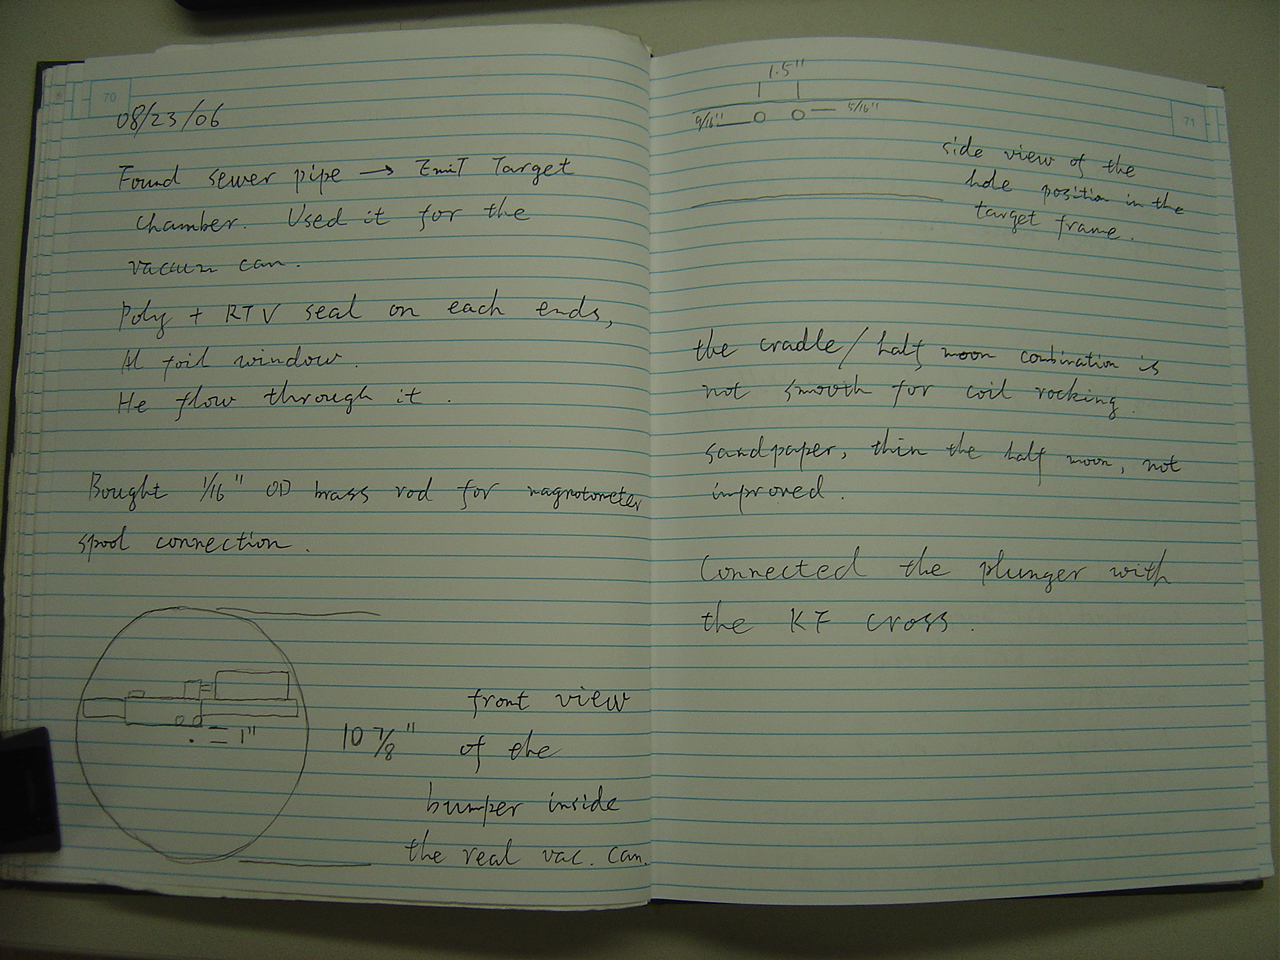 70
08/23/06
Found sewer pipe → EmiT Target
chamber. Used it for the
vacuum can.
Poly + RTV seal on each ends,
Al foil window.
He flow through it.
Bought 1/16" OD brass rod for magnotometer
spool connection.
= 1"
10 7/8"
front view
of the
bumper inside
the real vac. can.
71
1.5"
9/16"
5/16"
side view of the
hole position in the
target frame.
the cradle/half moon combination is
not smooth for coil rocking.
sandpaper, thin the half moon, not
improved.
Connected the plunger with
the KF cross.